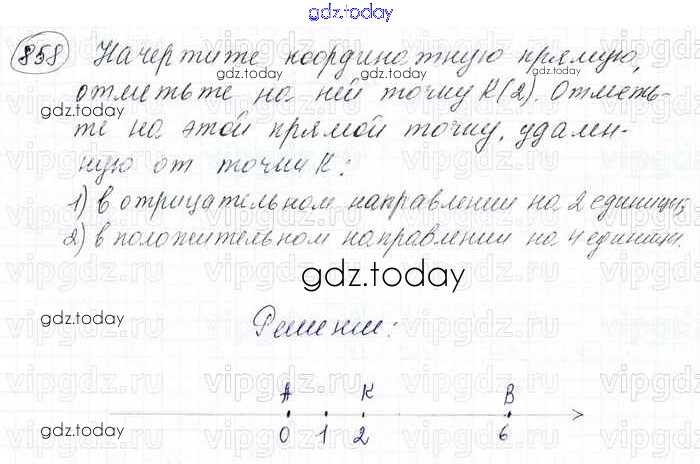 gdz.today
858 Начертите координатную прямую,
gdz.today gdz.today
отметьте на ней точку K(2). Отметь-
те на этой прямой точку, удален-
gdz.today gdz.today
ную от точки K:
1) в отрицательном направлении на 2 единицы;
2) в положительном направлении на 4 единицы.
gdz.today
gdz.today
Решение:
A K B
0 1 2 6
gdz.today gdz.today